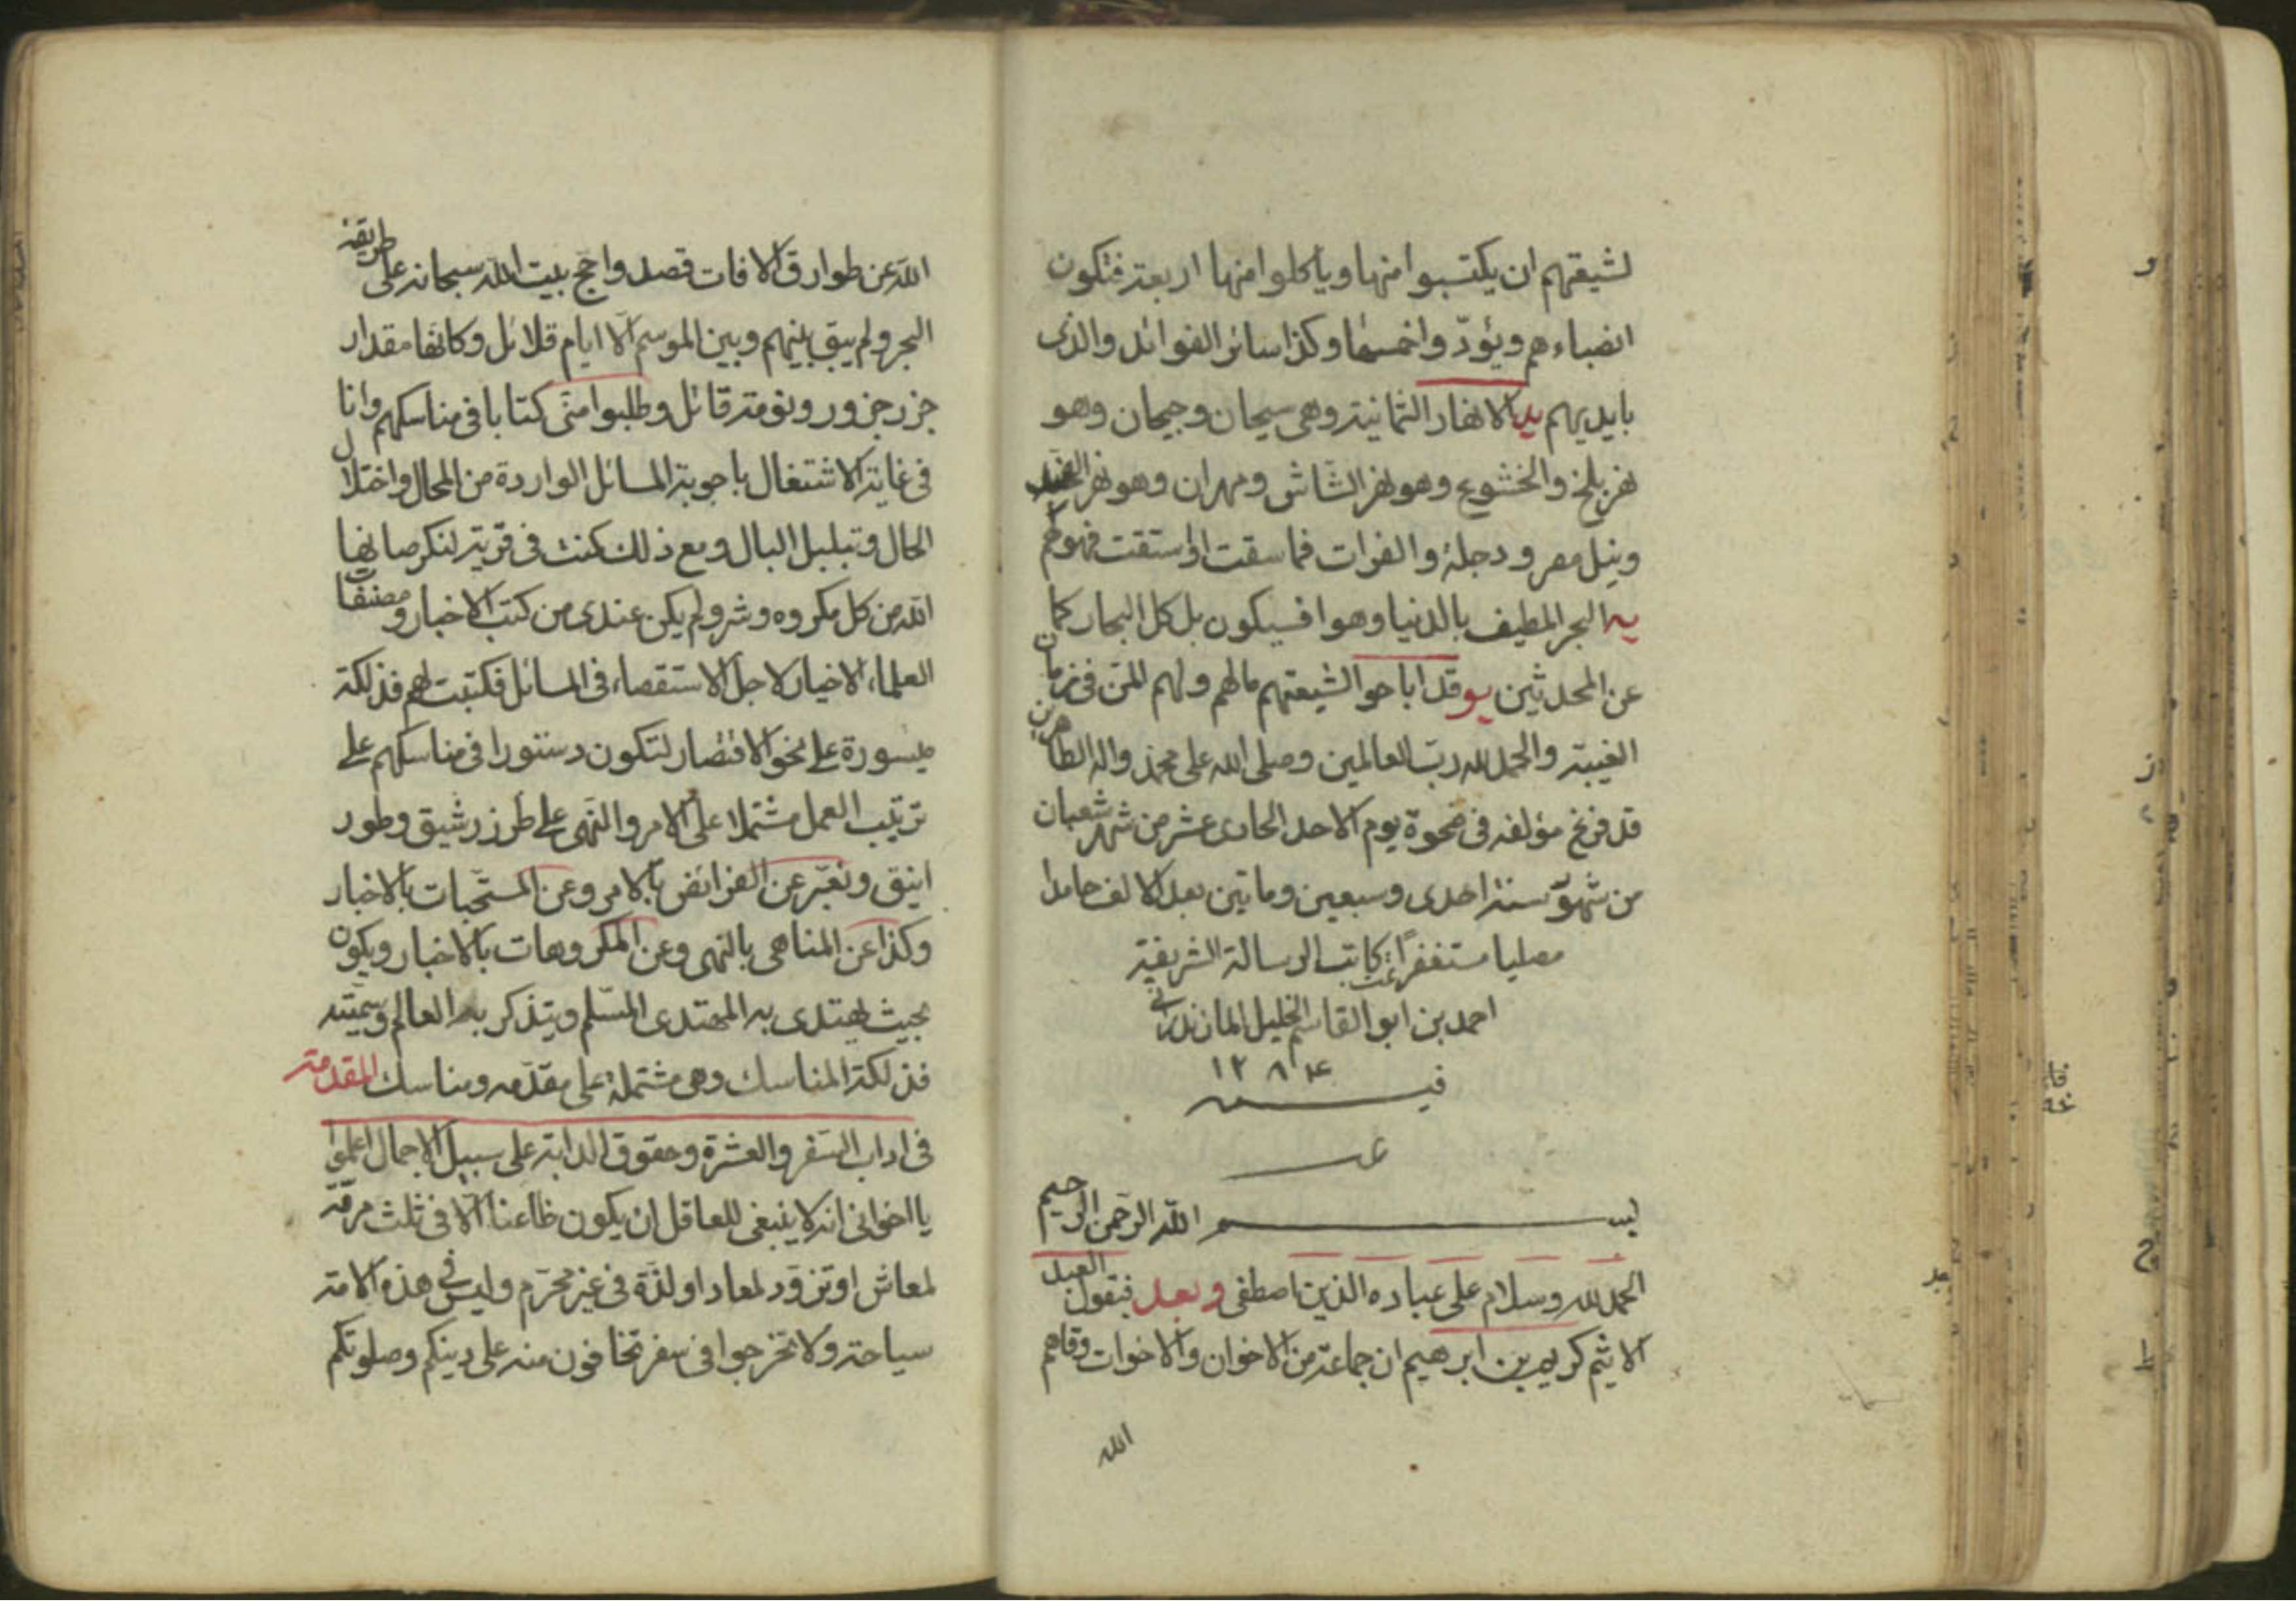 لشيعتهم ان يكتسبوا منها وياكلوا منها اربعة فتكون
انصباءهم ويؤدّوا خمسها وكذا سائر الفوائد والذى
بايديهم يد الانهار الثمانية وهى سيحان وجيحان وهو
نهر بلخ والخشوع وهو نهر الشاش ومهران وهو نهر الهند
ونيل مصر ودجلة والفرات فما سقت او استقت فهو لهم
يه البحر المطيف بالدنيا وهو افسيكون بل كل البحار كما
عن المحدثين يو قد اباحوا لشيعتهم مالهم ولهم المن فى زمان
الغيبة والحمد لله رب العالمين وصلى الله على محمد واله الطاهرين
قد فرغ مؤلفه فى ضحوة يوم الاحد الحادى عشر من شهر شعبان
من شهور سنة احدى وسبعين وماتين بعد الالف حامدا
مصليا مستغفرًا تمت كاتب الرسالة الشريفة
احمد بن ابو القاسم الخليل المازندرانى
فى سنه ١٢٨٤
بسم الله الرّحمن الرّحيم
الحمد لله وسلام على عباده الذين اصطفى وبعد فيقول العبد
الاثيم كريم بن ابرهيم ان جماعة من الاخوان والاخوات وقاهم
الله
الله عن طوارق الافات قصدوا حج بيت الله سبحانه على طريقة
البحر ولم يبق بينهم وبين الموسم الّا ايام قلائل وكانها مقدار
جزر جزور ونومة قائل وطلبوا منّى كتابا فى مناسكهم وانا
فى غاية الاشتغال باجوبة المسائل الواردة من المحال واختلال
الحال وتبلبل البال ومع ذلك كنت فى قرية لنكر صانها
الله من كل مكروه وشر ولم يكن عندى من كتب الاخبار ومصنفات
العلماء الاخيار لاجل الاستقصاء فى المسائل فكتبت لهم فذلكة
ميسورة على نحو الاقتصار لتكون دستورا فى مناسكهم على
ترتيب العمل مشتملا على الامر والنّهى على طرز رشيق وطور
انيق ونعبّر عن الفرائض بالامر وعن المستحبات بالاخبار
وكذا عن المناهى بالنهى وعن المكروهات بالاخبار ويكون
بحيث يهتدى به المهتدى المسّلم ويتذكر به العالم وسميّته
فذلكة المناسك وهى مشتملة على مقدّمه ومناسك المقدمة
فى اداب السّفر والعشرة وحقوق الدابة على سبيل الاجمال اعلموا
يا اخوانى انه لا ينبغى للعاقل ان يكون ظاعنا الّا فى ثلث مرمّة
لمعاش او تزوّد لمعاد او لذّة فى غير محرّم وليس فى هذه الامة
سياحة ولا تخرجوا فى سفر تخافون منه على دينكم وصلوتكم